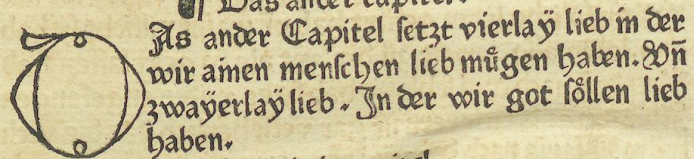 Das ander capitel.
DAs ander Capitel ſetzt vierlaÿ lieb in der
wir ainen menſchen lieb muͤgen haben. Vñ
zwaÿerlaÿ lieb. In der wir got ſoͤllen lieb
haben.